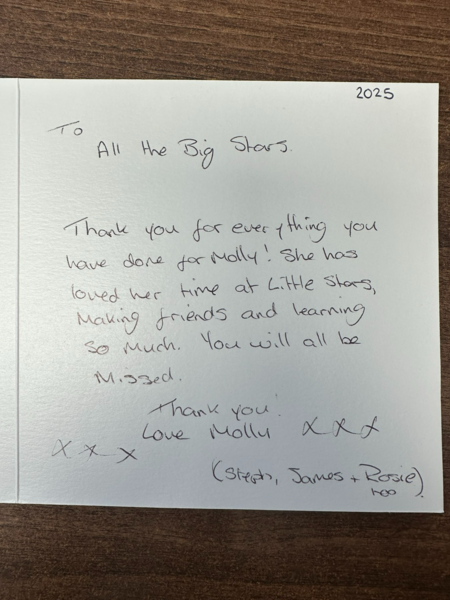 2025
To
All the Big Stars.
Thank you for everything you
have done for Molly! She has
loved her time at Little Stars,
Making friends and learning
so much. You will all be
Missed.
Thank you!
Love Molly x x x
x x x
(Steph, James + Rosie)
too